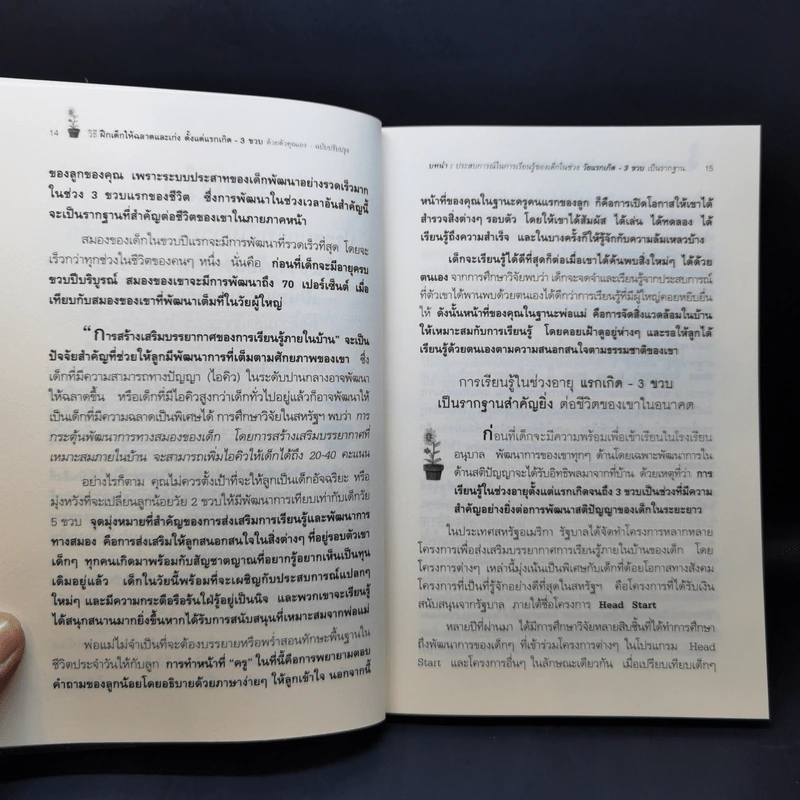 14 วิธี ฝึกเด็กให้ฉลาดและเก่ง ตั้งแต่แรกเกิด - 3 ขวบ ด้วยตัวคุณเอง - ฉบับปรับปรุง
ของลูกของคุณ เพราะระบบประสาทของเด็กพัฒนาอย่างรวดเร็วมาก
ในช่วง 3 ขวบแรกของชีวิต ซึ่งการพัฒนาในช่วงเวลาอันสำคัญนี้
จะเป็นรากฐานที่สำคัญต่อชีวิตของเขาในภายภาคหน้า
สมองของเด็กในขวบปีแรกจะมีการพัฒนาที่รวดเร็วที่สุด โดยจะ
เร็วกว่าทุกช่วงในชีวิตของคนๆ หนึ่ง นั่นคือ ก่อนที่เด็กจะมีอายุครบ
ขวบปีบริบูรณ์ สมองของเขาจะมีการพัฒนาถึง 70 เปอร์เซ็นต์ เมื่อ
เทียบกับสมองของเขาที่พัฒนาเต็มที่ในวัยผู้ใหญ่
“การสร้างเสริมบรรยากาศของการเรียนรู้ภายในบ้าน” จะเป็น
ปัจจัยสำคัญที่ช่วยให้ลูกมีพัฒนาการที่เต็มตามศักยภาพของเขา ซึ่ง
เด็กที่มีความสามารถทางปัญญา (ไอคิว) ในระดับปานกลางอาจพัฒนา
ให้ฉลาดขึ้น หรือเด็กที่มีไอคิวสูงกว่าเด็กทั่วไปอยู่แล้วก็อาจพัฒนาให้
เป็นเด็กที่มีความฉลาดเป็นพิเศษได้ การศึกษาวิจัยในสหรัฐฯ พบว่า การ
กระตุ้นพัฒนาการทางสมองของเด็ก โดยการสร้างเสริมบรรยากาศที่
เหมาะสมภายในบ้าน จะสามารถเพิ่มไอคิวให้เด็กได้ถึง 20-40 คะแนน
อย่างไรก็ตาม คุณไม่ควรตั้งเป้าที่จะให้ลูกเป็นเด็กอัจฉริยะ หรือ
มุ่งหวังที่จะเปลี่ยนลูกน้อยวัย 2 ขวบให้มีพัฒนาการเทียบเท่ากับเด็กวัย
5 ขวบ จุดมุ่งหมายที่สำคัญของการส่งเสริมการเรียนรู้และพัฒนาการ
ทางสมอง คือการส่งเสริมให้ลูกสนอกสนใจในสิ่งต่างๆ ที่อยู่รอบตัวเขา
เด็กๆ ทุกคนเกิดมาพร้อมกับสัญชาตญาณที่อยากรู้อยากเห็นเป็นทุน
เดิมอยู่แล้ว เด็กในวัยนี้พร้อมที่จะเผชิญกับประสบการณ์แปลกๆ
ใหม่ๆ และมีความกระตือรือร้นใฝ่รู้อยู่เป็นนิจ และพวกเขาจะเรียนรู้
ได้สนุกสนานมากยิ่งขึ้นหากได้รับการสนับสนุนที่เหมาะสมจากพ่อแม่
พ่อแม่ไม่จำเป็นที่จะต้องบรรยายหรือพร่ำสอนทักษะพื้นฐานใน
ชีวิตประจำวันให้กับลูก การทำหน้าที่ “ครู” ในที่นี้คือการพยายามตอบ
คำถามของลูกน้อยโดยอธิบายด้วยภาษาง่ายๆ ให้ลูกเข้าใจ นอกจากนี้
บทนำ / ประสบการณ์ในการเรียนรู้ของเด็กในช่วง วัยแรกเกิด - 3 ขวบ เป็นรากฐาน 15
หน้าที่ของคุณในฐานะครูคนแรกของลูก ก็คือการเปิดโอกาสให้เขาได้
สำรวจสิ่งต่างๆ รอบตัว โดยให้เขาได้สัมผัส ได้เล่น ได้ทดลอง ได้
เรียนรู้ถึงความสำเร็จ และในบางครั้งก็ให้รู้จักกับความล้มเหลวบ้าง
เด็กจะเรียนรู้ได้ดีที่สุดก็ต่อเมื่อเขาได้ค้นพบสิ่งใหม่ๆ ได้ด้วย
ตนเอง จากการศึกษาวิจัยพบว่า เด็กจะจดจำและเรียนรู้จากประสบการณ์
ที่ตัวเขาได้พานพบด้วยตนเองได้ดีกว่าการเรียนรู้ที่มีผู้ใหญ่คอยหยิบยื่น
ให้ ดังนั้นหน้าที่ของคุณในฐานะพ่อแม่ คือการจัดสิ่งแวดล้อมในบ้าน
ให้เหมาะสมกับการเรียนรู้ โดยคอยเฝ้าดูอยู่ห่างๆ และรอให้ลูกได้
เรียนรู้ด้วยตนเองตามความสนอกสนใจตามธรรมชาติของเขา
การเรียนรู้ในช่วงอายุ แรกเกิด - 3 ขวบ
เป็นรากฐานสำคัญยิ่ง ต่อชีวิตของเขาในอนาคต
ก่อนที่เด็กจะมีความพร้อมเพื่อเข้าเรียนในโรงเรียน
อนุบาล พัฒนาการของเขาทุกๆ ด้านโดยเฉพาะพัฒนาการใน
ด้านสติปัญญาจะได้รับอิทธิพลมาจากที่บ้าน ด้วยเหตุที่ว่า การ
เรียนรู้ในช่วงอายุตั้งแต่แรกเกิดจนถึง 3 ขวบเป็นช่วงที่มีความ
สำคัญอย่างยิ่งต่อการพัฒนาสติปัญญาของเด็กในระยะยาว
ในประเทศสหรัฐอเมริกา รัฐบาลได้จัดทำโครงการหลากหลาย
โครงการเพื่อส่งเสริมบรรยากาศการเรียนรู้ภายในบ้านของเด็ก โดย
โครงการต่างๆ เหล่านี้มุ่งเน้นเป็นพิเศษกับเด็กที่ด้อยโอกาสทางสังคม
โครงการที่เป็นที่รู้จักอย่างดีที่สุดในสหรัฐฯ คือโครงการที่ได้รับเงิน
สนับสนุนจากรัฐบาล ภายใต้ชื่อโครงการ Head Start
หลายปีที่ผ่านมา ได้มีการศึกษาวิจัยหลายสิบชิ้นที่ได้ทำการศึกษา
ถึงพัฒนาการของเด็กๆ ที่เข้าร่วมโครงการต่างๆ ในโปรแกรม Head
Start และโครงการอื่นๆ ในลักษณะเดียวกัน เมื่อเปรียบเทียบเด็กๆ